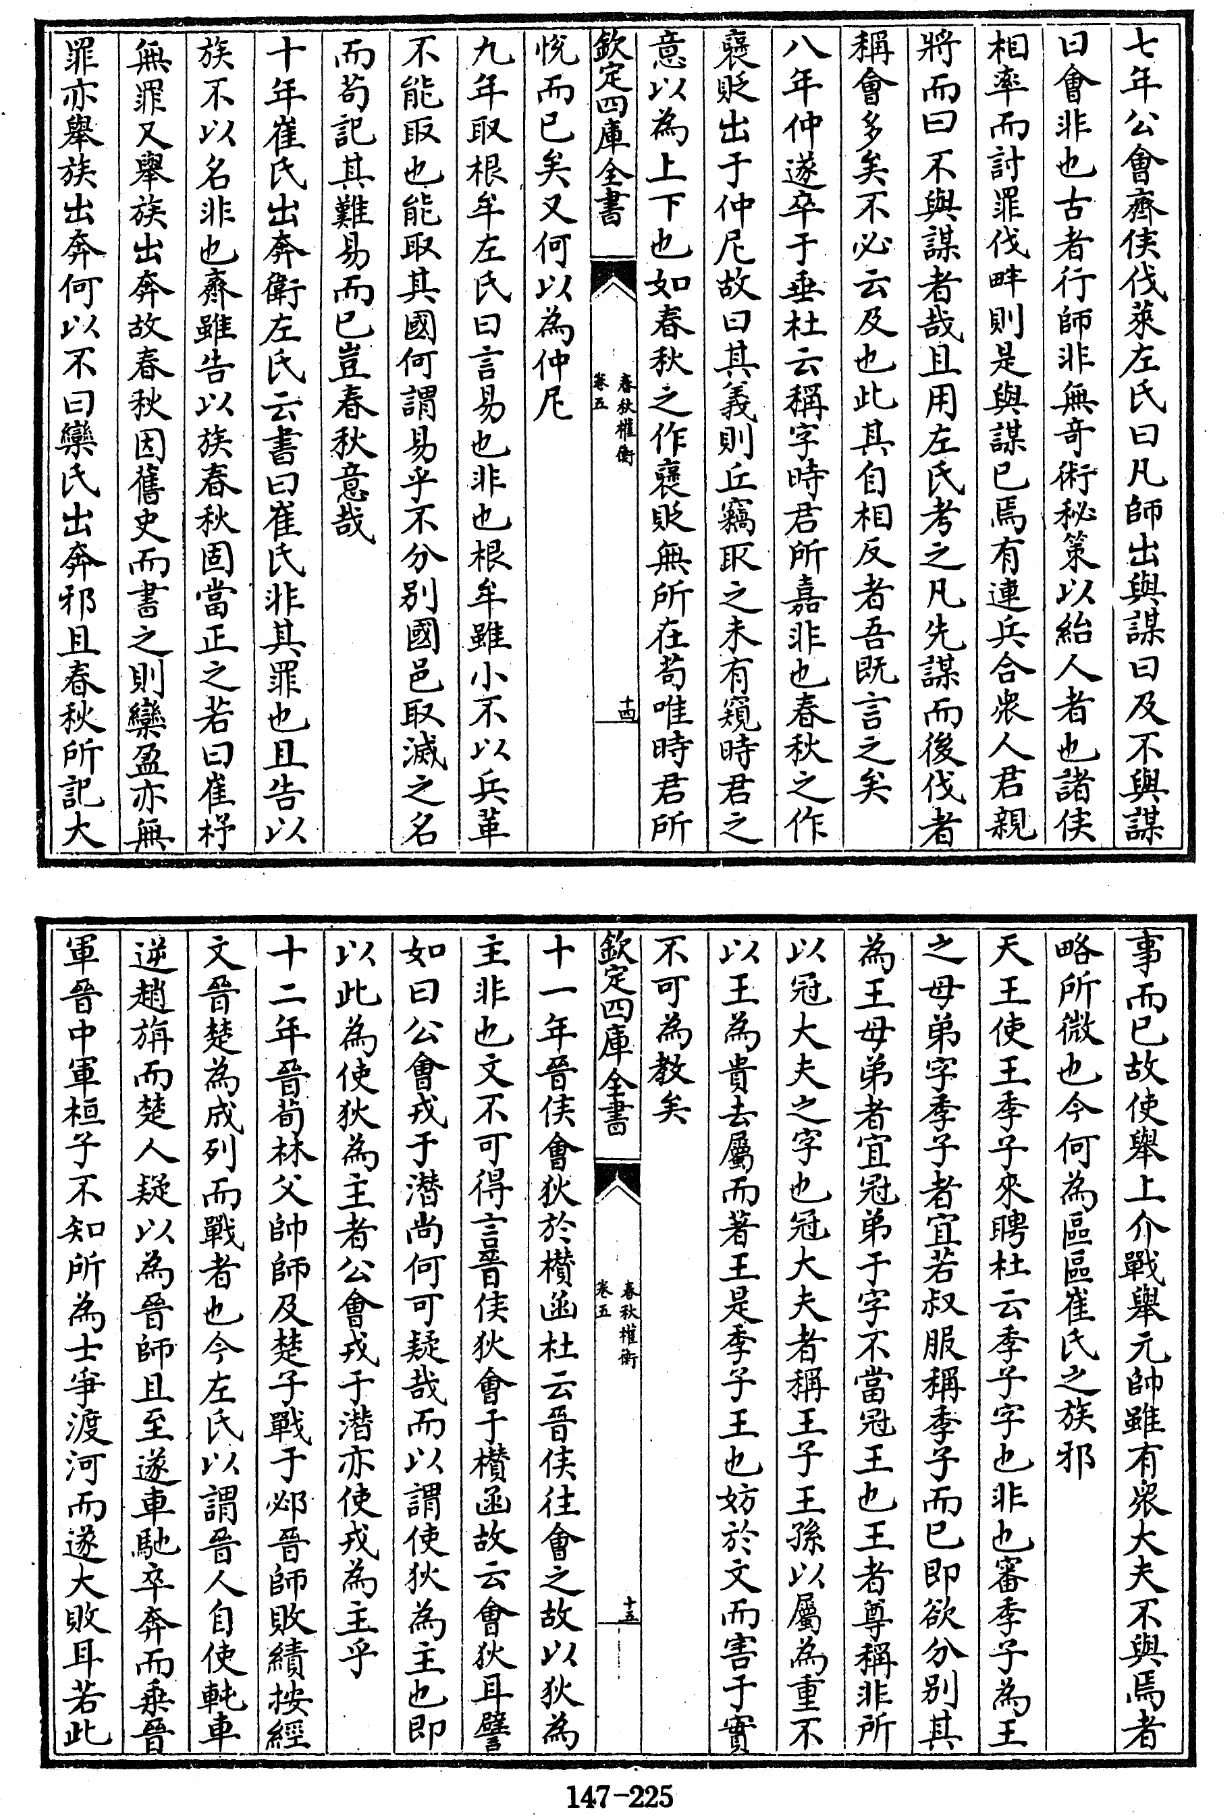 七年公會齊侯伐萊左氏曰凡師出與謀曰及不與謀
曰會非也古者行師非無竒術秘策以紿人者也諸侯
相率而討罪伐畔則是與謀已焉有連兵合衆人君親
將而曰不與謀者哉且用左氏考之凡先謀而後伐者
稱會多矣不必云及也此其自相反者吾既言之矣
八年仲遂卒于垂杜云稱字時君所嘉非也春秋之作
襃貶出于仲尼故曰其義則丘竊取之未有窺時君之
意以為上下也如春秋之作襃貶無所在茍唯時君所
欽定四庫全書
春秋權衡
卷五
十四
悅而已矣又何以為仲尼
九年取根牟左氏曰言易也非也根牟雖小不以兵革
不能取也能取其國何謂易乎不分别國邑取滅之名
而茍記其難易而已豈春秋意哉
十年崔氏出奔衛左氏云書曰崔氏非其罪也且告以
族不以名非也齊雖告以族春秋固當正之若曰崔杼
無罪又舉族出奔故春秋因舊史而書之則欒盈亦無
罪亦舉族出奔何以不曰欒氏出奔邪且春秋所記大
事而已故使舉上介戰舉元帥雖有衆大夫不與焉者
略所微也今何為區區崔氏之族邪
天王使王季子來聘杜云季子字也非也審季子為王
之母弟字季子者宜若叔服稱季子而已即欲分别其
為王母弟者宜冠弟于字不當冠王也王者尊稱非所
以冠大夫之字也冠大夫者稱王子王孫以屬為重不
以王為貴去屬而著王是季子王也妨於文而害于實
不可為教矣
欽定四庫全書
春秋權衡
卷五
十五
十一年晉侯會狄於欑函杜云晉侯往會之故以狄為
主非也文不可得言晉侯狄會于欑函故云會狄耳譬
如曰公會戎于潛尚何可疑哉而以謂使狄為主也即
以此為使狄為主者公會戎于潛亦使戎為主乎
十二年晉荀林父帥師及楚子戰于邲晉師敗績按經
文晉楚為成列而戰者也今左氏以謂晉人自使軘車
逆趙旃而楚人疑以為晉師且至遂車馳卒奔而乘晉
軍晉中軍桓子不知所為士爭渡河而遂大敗耳若此
147-225